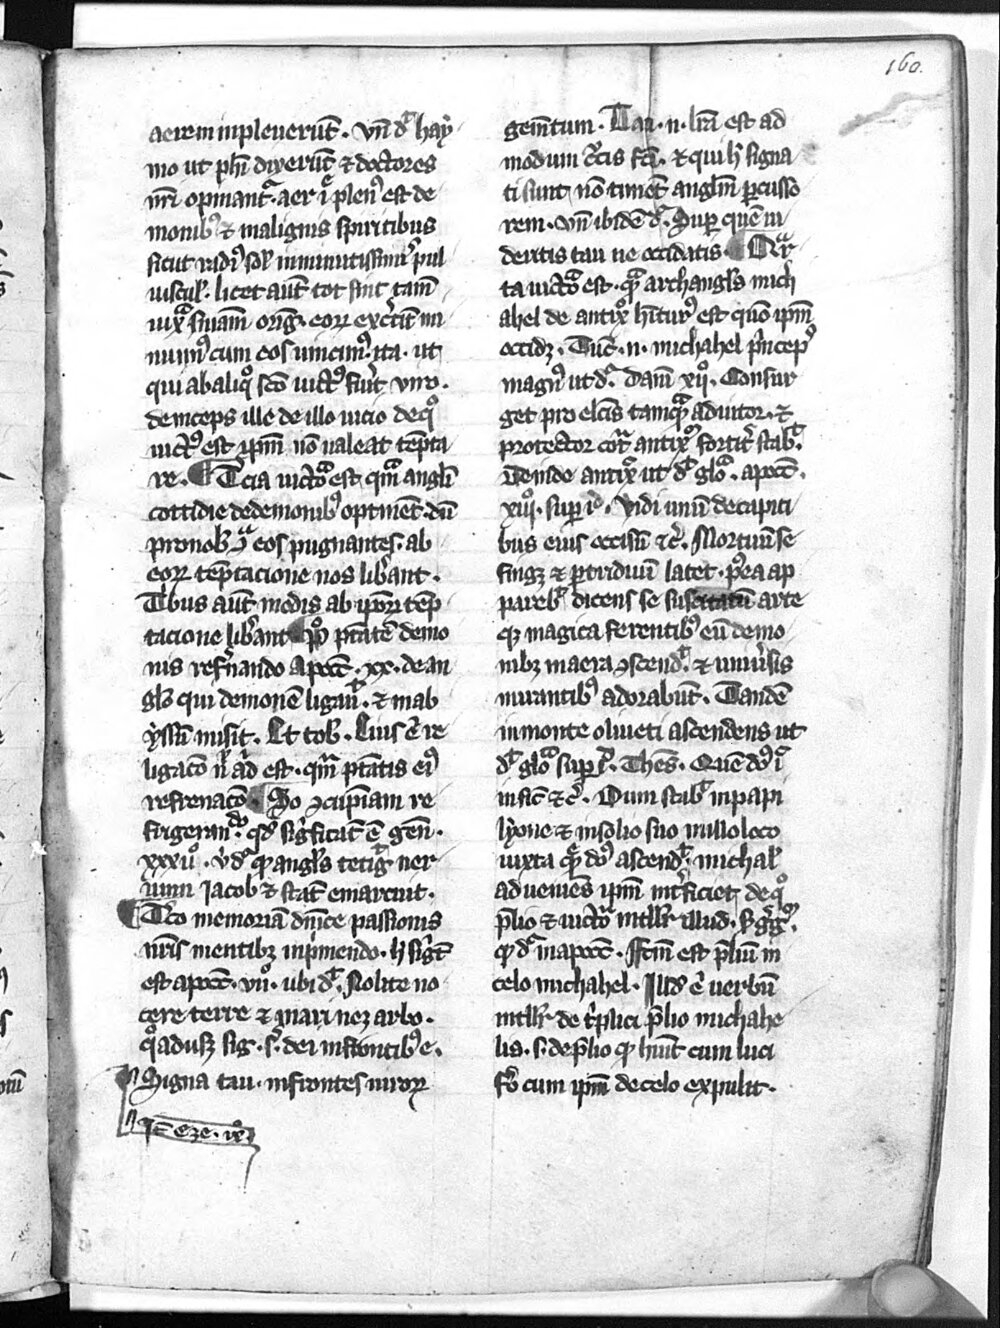 160.
aerem inpleuerūt. Vn̄ dr̄ hay
mo ut ph̄i dixerūt & doctores
nr̄i opinant͛. aer iste plen⁹ est de
monib⁹ & malignis spiritibus
sicut radi⁹ sol' minutissimis pul
uiscul'. licet aut̄ tot sint tam̄
iuxͣ snīam orig̅. eoꝝ exc̄itū mi
nuim⁹ cum eos uincim⁹. ita. ut
qui ab aliqͦ scō uict⁹ fūit viro.
deinceps ille de illo uicio de qͦ
uict⁹ est ip̄m nō ualeat tēpta
re. Tcia uictͦa est qͣm angl̄i
cottidie de demonib⁹ optinēt. dū
pro nob̄ ꝯͣ eos pugnantes. ab
eoꝝ tēptacione nos lib̄ant.
Tbus aut̄ modis ab ip̄oꝝ tēp
tacione lib̄ant pͦ ptātē demo
nis refrn̄ando Apoc̄. xx. de an
glo qui demonē ligauͭ. & in ab
yssū misit. Et tob̄. Eius ē re
ligacō
refrenacō. Sͦo ꝯcupīam re
frigerandͦ. qd̄ sig̅ficat̄ ē gen̄.
xxxiiͦ. vͥ dr̄ qꝫ angl's tetigͭ ner
uum Jacob & stat̄ emarcuit.
Tͨo memoriā dn̄ice passionis
nr̄is mentibꝫ inp̄mendo. h̄ sig̅t̄
est apoc̄. viiͦ. ubi dr̄. Nolite no
cere terre & mari neqꝫ arbo.
qͦadusqꝫ sig. s̄. dei in frontib⁹ e.
Signa tau. in frontes uiroꝝ
Jt̄ eze. ixͦ
gem̄tum. Tau. n. līa est ad
modum c̄cis fc̄a. & qui h̄ signa
ti sunt nō timēt angl̄m p̲cusso
rem. vn̄ ibidē dr̄. Sup̲ quē ui
deritis tau ne occidatis. Qͣr
ta uictͦa est. qͣ archangl's mich
ahel de antix̄ͦ h̄itur⁹ est qn̄ ip̄m
occidꝫ. Tūc. n. michahel p̄ncep⁹
magn⁹ ut dr̄. Dan̄ xiiͦ. Consur
get pro elc̄is tamqͣ adiutor. &
protector cot̄ͣ antix̄ͫ fortit̄ stab̄.
Deinde antix̄ͨ ut dr̄ gloͣ. apoc̄.
xiiiͦ. sup̲ iͩ. Vidi unū de capiti
bus eius occisū &c̄. Mortuū se
fingꝫ & p̲ triduū latet. p⁹ea ap
parebͭ dicens se suscitatū arte
qꝫ magica ferentib⁹ eū demo
nibꝫ in aera ꝯscendͭ. & uniu̅sis
mirantib⁹ adorabūt. Tandē
in monte oliueti ascendens ut
dr̄ gloͣ sup̲ 2ͣ. Thes̄. Quē dn̄s iͪ
infic̄ &c̄. Dum stabͭ in papi
lyone & in solio suo in illo loco
iuxta quē dn̄s ascendͭ. michah̄
adueniēs ip̄m int̄ficiet. de qͦ
p̄lio & uictͦa intllr̄ illud. B. greg̅.
qd̄ dr̄ in apoc̄. Fc̄m est p̄liū in
celo michahel. Illd̄ ē uerbū
intllr̄ de t̄plici p̄lio michahe
lis. s. de p̄lio qd̄ huīt cum luci
fͦo cum ip̄m de celo expulit.